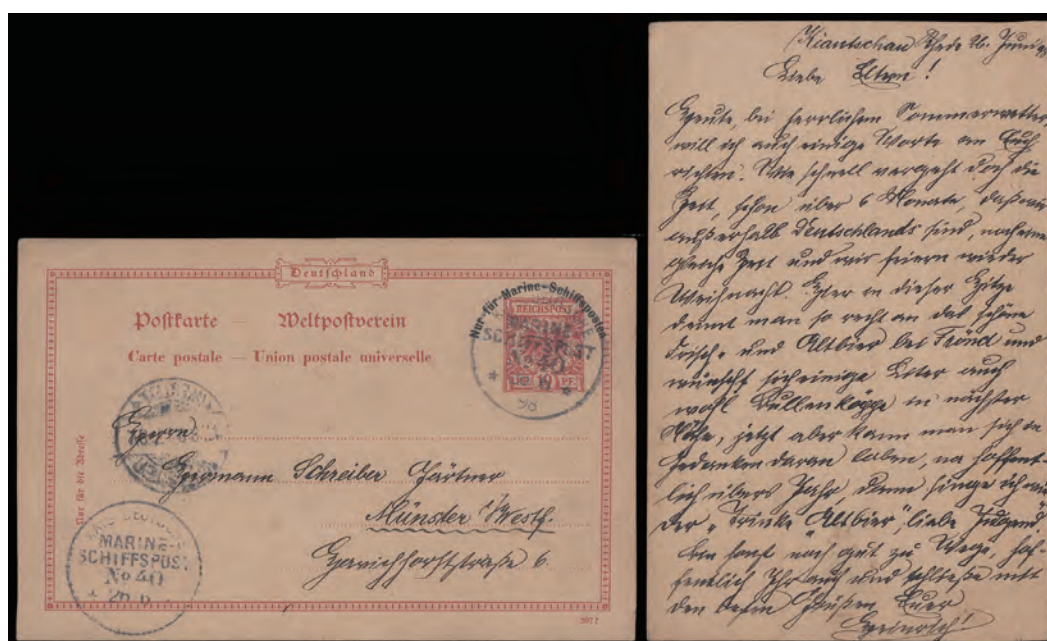 Deutschland
Postkarte — Weltpostverein
Carte postale — Union postale universelle
Nur für Marine-Schiffsposten
REICHSPOST
10 PF
MARINE-
SCHIFFSPOST
No 40
98
Nur für die Adresse
Herrn
Hermann Schreiber Gärtner
Münster i/Westf.
straße 6.
MARINE-
SCHIFFSPOST
No 40
26 6
Kiautschau Rhede 26. Juni
Liebe Eltern!
Heute, bei herrlichem Sommerwetter,
will ich auch einige Worte an Euch
richten. Wie schnell vergeht doch die
Zeit, schon über 6 Monate, daß wir
außerhalb Deutschlands sind, noch eine
gleiche Zeit und wir feiern wieder
Weihnacht. Hier in dieser Hitze
denkt man so recht an das schöne
Frisch- und Altbier bei und
wünscht sich einige Liter auch
wohl in nächster
Nähe, jetzt aber kann man sich in
Gedanken daran laben, na hoffent-
lich übers Jahr, dann singe ich wie-
der „Trinke Altbier", liebe Jugend
bin sonst noch gut zu Wege, hof-
fentlich Ihr auch und schließe mit
den besten Grüßen Euer
Heinrich!